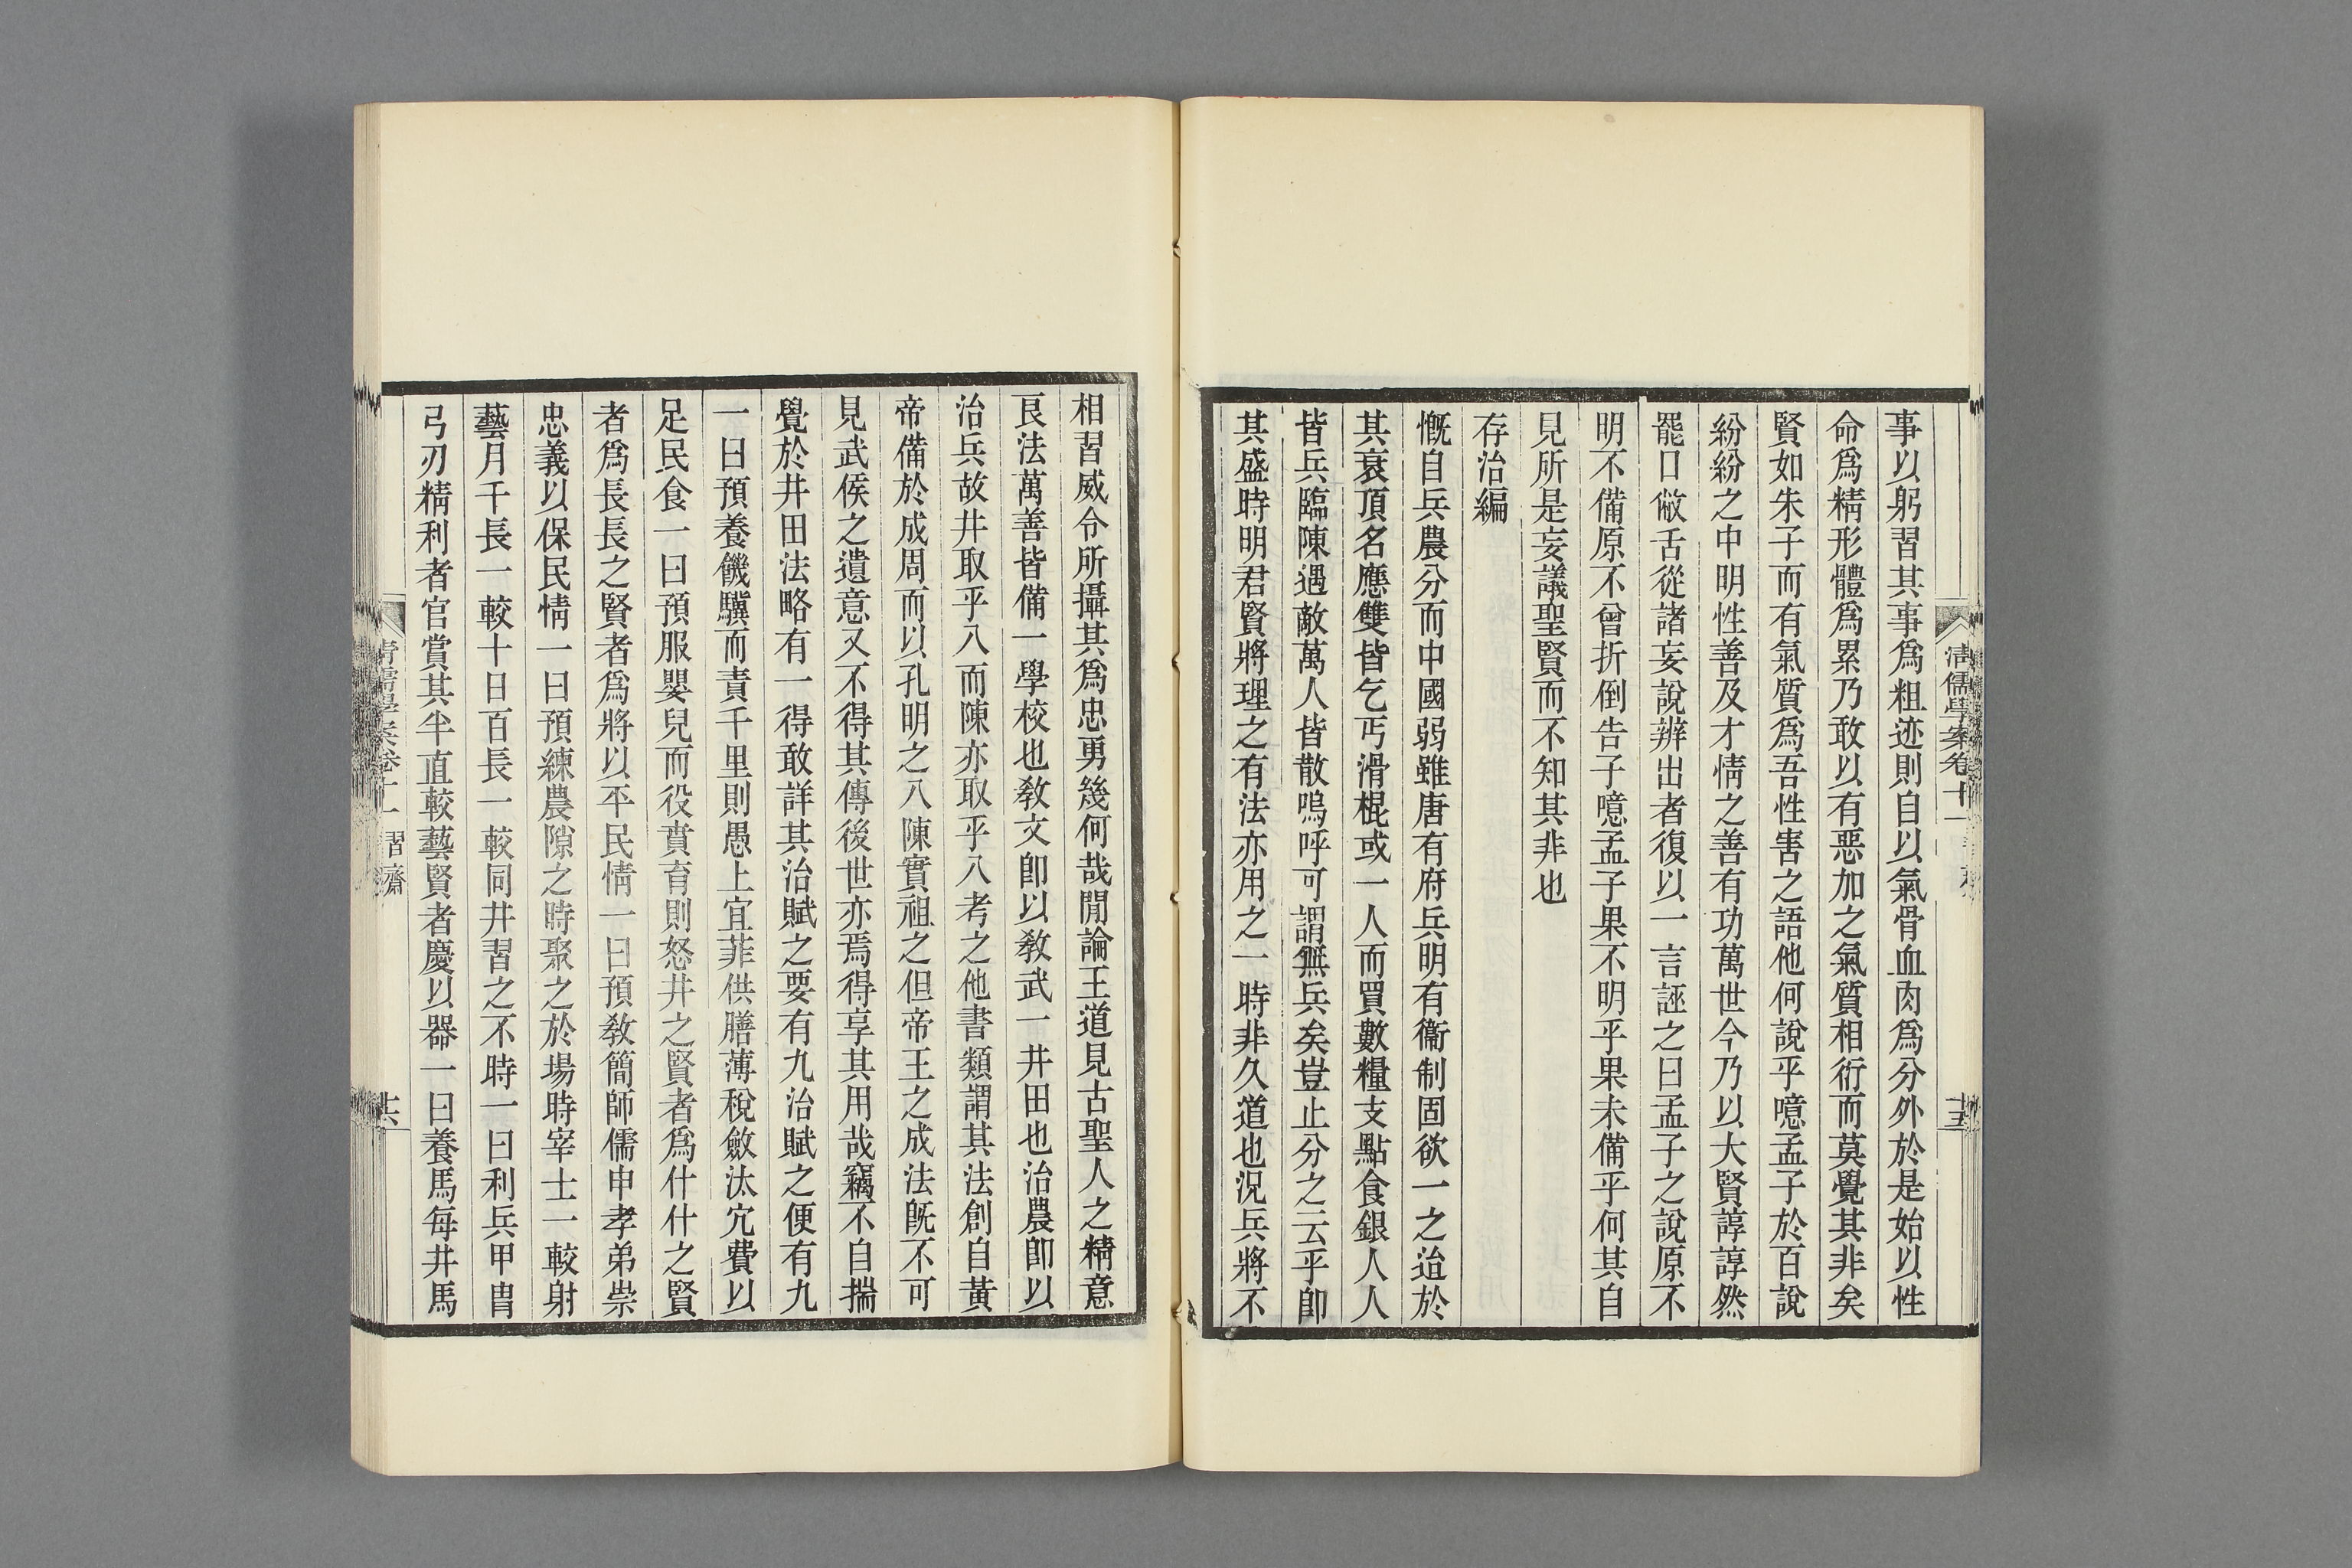 事以躬習其事爲粗迹則自以氣骨血肉爲分外於是始以性
命爲精形體爲累乃敢以有惡加之氣質相衍而莫覺其非矣
賢如朱子而有氣質爲吾性害之語他何說乎噫孟子於百說
紛紛之中明性善及才情之善有功萬世今乃以大賢諄諄然
罷口敝舌從諸妄說辨出者復以一言誣之曰孟子之說原不
明不備原不曾折倒告子噫孟子果不明乎果未備乎何其自
見所是妄議聖賢而不知其非也
存治編
慨自兵農分而中國弱雖唐有府兵明有衞制固欲一之迨於
其衰頂名應雙皆乞丐滑棍或一人而買數糧支點食銀人人
皆兵臨陳遇敵萬人皆散嗚呼可謂無兵矣豈止分之云乎卽
其盛時明君賢將理之有法亦用之一時非久道也況兵將不
清儒學案卷十一
十五
相習威令所攝其爲忠勇幾何哉閒論王道見古聖人之精意
良法萬善皆備一學校也敎文卽以敎武一井田也治農卽以
治兵故井取乎八而陳亦取乎八考之他書類謂其法創自黃
帝備於成周而以孔明之八陳實祖之但帝王之成法旣不可
見武侯之遺意又不得其傳後世亦焉得享其用哉竊不自揣
覺於井田法略有一得敢詳其治賦之要有九治賦之便有九
一曰預養饑驥而責千里則愚上宜菲供膳薄稅斂汰宂費以
足民食一曰預服嬰兒而役賁育則怒井之賢者爲什什之賢
者爲長長之賢者爲將以平民情一曰預敎簡師儒申孝弟崇
忠義以保民情一曰預練農隙之時聚之於場時宰士一較射
藝月千長一較十日百長一較同井習之不時一曰利兵甲冑
弓刃精利者官賞其半直較藝賢者慶以器一曰養馬每井馬
清儒學案卷十一 習齋
十六